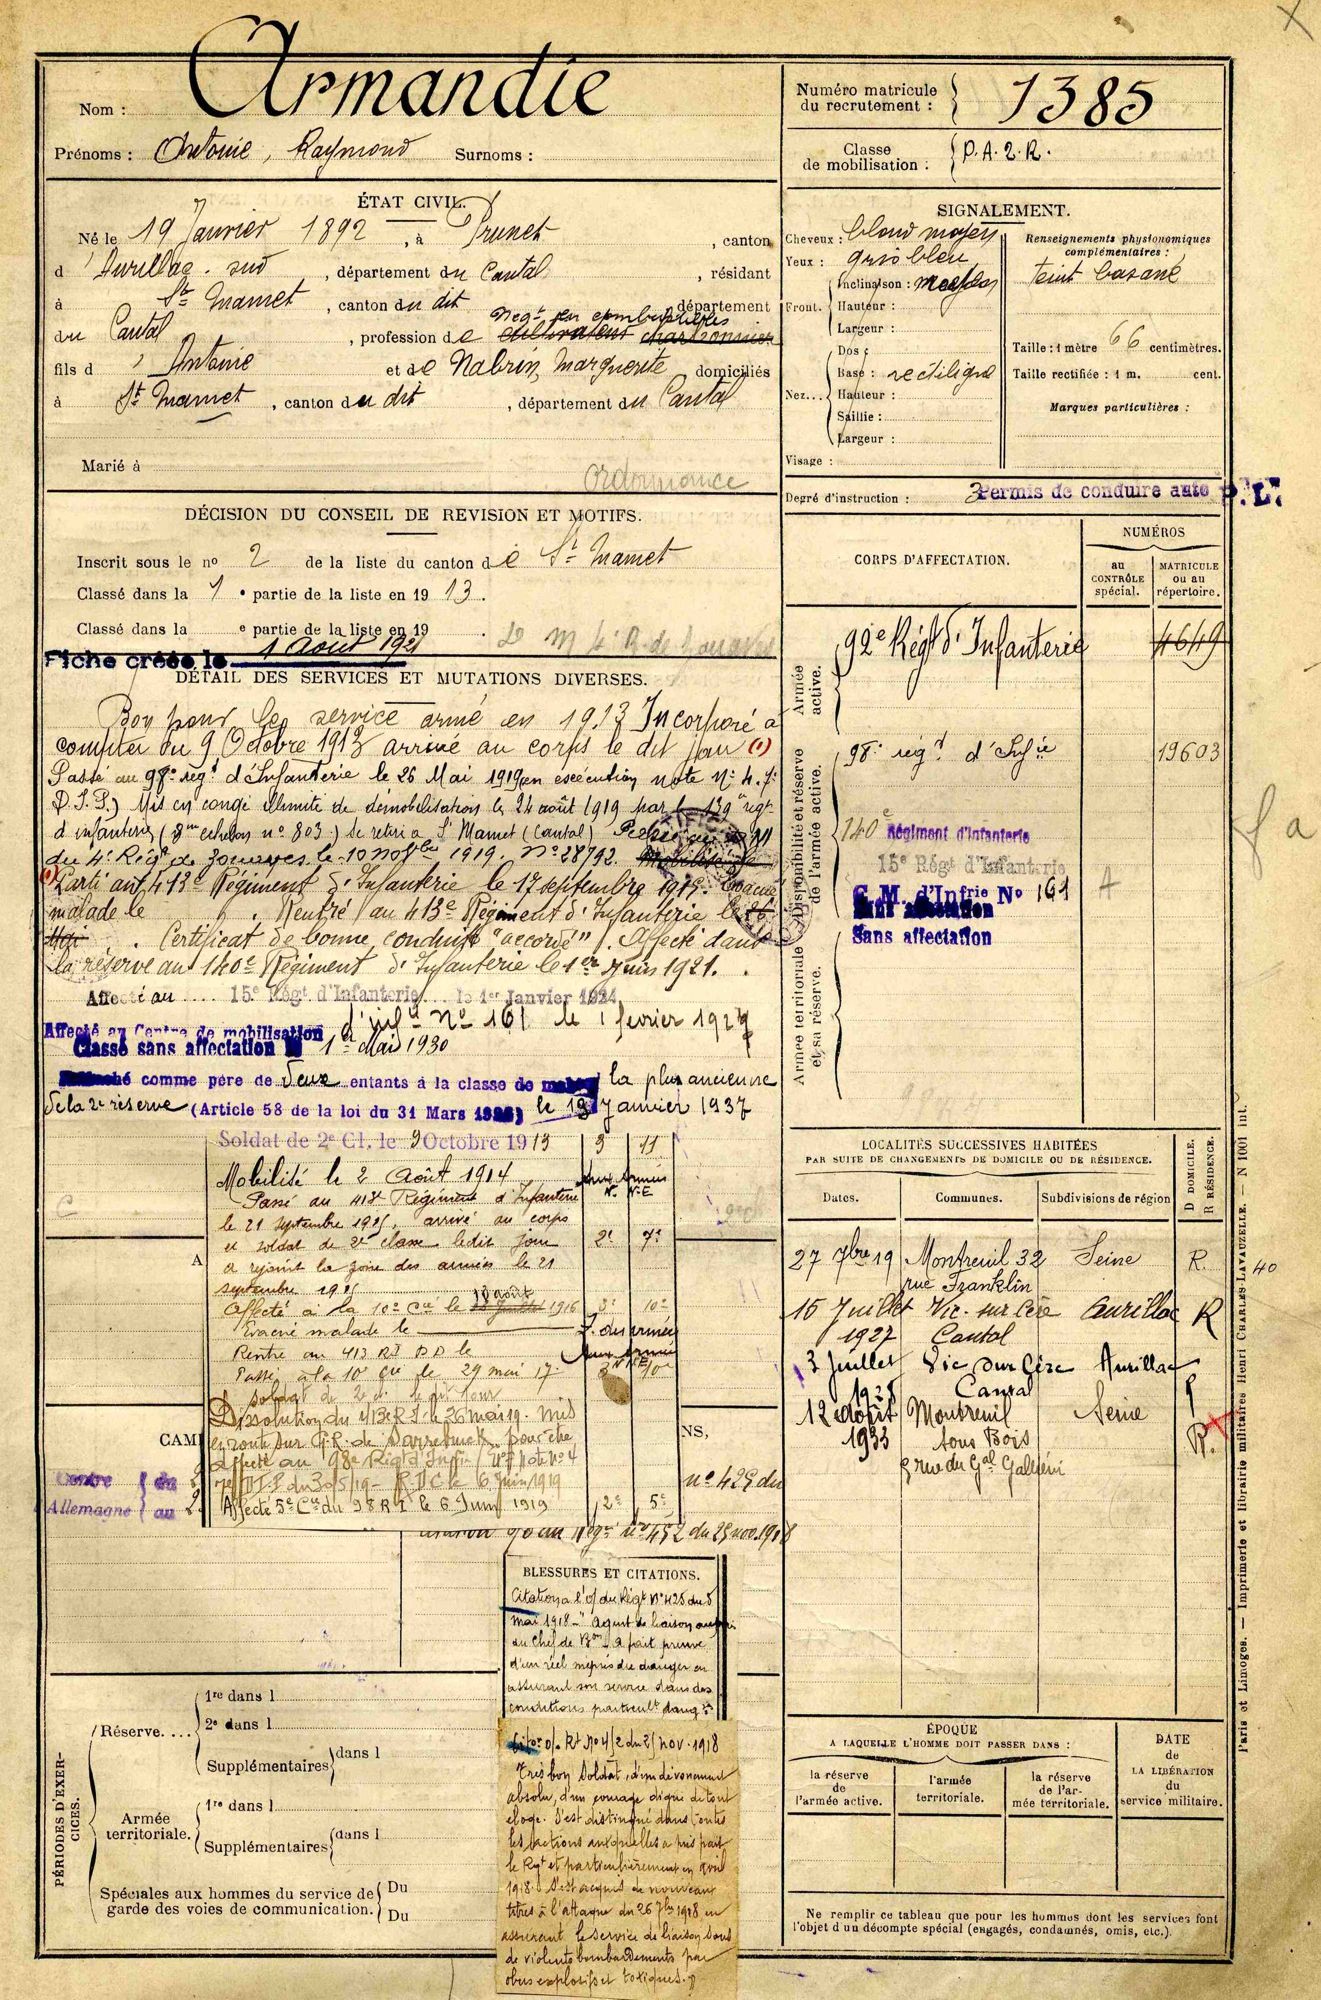 Nom : Armandie
Prénoms : Antoine, Raymond Surnoms :
ÉTAT CIVIL.
Né le 19 Janvier 1892, à Prunet, canton
d'Aurillac-sud, département du Cantal, résidant
à St Mamet, canton du dit département
du Cantal, profession de cultivateur charbonnier
Negt en combustibles
fils d'Antoine et de Nabrin, Marguerite domiciliés
à St Mamet, canton du dit, département du Cantal
Marié à
Ordonnance
DÉCISION DU CONSEIL DE REVISION ET MOTIFS.
Inscrit sous le no 2 de la liste du canton de St Mamet
Classé dans la 1e partie de la liste en 1913.
Classé dans la e partie de la liste en 19 .
Fiche créée le 1 Août 1921
4e R. de Zouaves
DÉTAIL DES SERVICES ET MUTATIONS DIVERSES.
Bon pour le service armé en 1913 Incorporé à
compter du 9 Octobre 1913 arrivé au corps le dit jour (1)
Passé au 98e régt d'Infanterie le 26 Mai 1919 (en exécution note No 4.7.
D.I.P.) Mis en congé illimité de démobilisation le 24 août 1919 par le 139e régt
d'infanterie (8me échelon no 803) Se retire à St Mamet (Cantal)
du 4e Régt de Zouaves le 10 Novbre 1919. No 28792.
(1) Parti au 413e Régiment d'Infanterie le 17 septembre 1915. Evacué
malade le . Rentré au 413e Régiment d'Infanterie le 26
Mai . Certificat de bonne conduite "accordé". Affecté dans
la réserve au 140e Régiment d'Infanterie le 1er Juin 1921.
Affecté au 15e Régt d'Infanterie le 1er Janvier 1924
Affecté au Centre de mobilisation d'inf. No 161 le 1 février 1927
Classé sans affectation le 1er Mai 1930
comme père de deux enfants à la classe de la plus ancienne
de la 2e réserve (Article 58 de la loi du 31 Mars ) le 19 Janvier 1937
Soldat de 2e Cl. le 9 Octobre 1913 3 11
Mobilisé le 2 Août 1914
Passé au 413e Régiment d'Infanterie
le 21 septembre 1915, arrivé au corps
et soldat de 2e classe ledit jour 2e 7e
a rejoint la zone des armées le 21
septembre 1915
Affecté à la 10e Cie le 18 Juillet 1916 3e 10e
10 août
Evacué malade le
Rentré au 413 RI DD le
Passé à la 10e Cie le 29 mai 17
soldat de 2e cl. le dit jour
Dissolution du 413e R.I. le 26 mai 19. Mis
en route sur G.R. de pour être
affecté au 98e Régt d'Inf
du 30/5/19 - R.D.C. le 6 Juin 1919
Affecté 5e Cie du 98 R I le 6 Juin 1919 2e 5e
CAM
NS,
Contre du
Allemagne au
no 425 du
no 452 du 25 nov. 1918
BLESSURES ET CITATIONS.
Citation à l'o/ du Régt No 425 du 5
mai 1918 - "agent de liaison auprès
du Chef de Bon a fait preuve
d'un réel mépris du danger en
assurant son service dans des
conditions particult dang
Cit. o/. Rt No 452 du 25 nov. 1918
Très bon Soldat, d'un dévouement
absolu, d'un courage digne de tout
éloge. S'est distingué dans toutes
les actions auxquelles a pris part
le Rgt et particulièrement en avril
1918. S'est acquis de nouveaux
titres à l'attaque du 26 7bre 1918 en
assurant le service de liaison sous
de violents bombardements par
obus explosifs et toxiques.
PÉRIODES D'EXERCICES.
Réserve....
1re dans l
2e dans l
Supplémentaires dans l
Armée territoriale.
1re dans l
Supplémentaires dans l
Spéciales aux hommes du service de
garde des voies de communication.
Du
Du
Numéro matricule
du recrutement : 1385
Classe
de mobilisation : P.A.2.R.
SIGNALEMENT.
Cheveux : blond moyen
Yeux : gris bleu
Front. Inclinaison : moyen
Hauteur :
Largeur :
Nez... Dos :
Base : rectiligne
Hauteur :
Saillie :
Largeur :
Visage :
Renseignements physionomiques
complémentaires :
teint basané
Taille : 1 mètre 66 centimètres.
Taille rectifiée : 1 m. cent.
Marques particulières :
Degré d'instruction : 3
Permis de conduire auto P.L.
CORPS D'AFFECTATION.
NUMÉROS
au
CONTRÔLE
spécial.
MATRICULE
ou au
répertoire.
Armée active.
92e Régt d'Infanterie 4649
Disponibilité et réserve de l'armée active.
98e régt d'Infie 19603
140e Régiment d'Infanterie
15e Régt d'Infanterie
C. M. d'Infrie No 161 A
Sans affectation
Sans affectation
Armée territoriale et sa réserve.
LOCALITÉS SUCCESSIVES HABITÉES
PAR SUITE DE CHANGEMENTS DE DOMICILE OU DE RÉSIDENCE.
Dates. Communes. Subdivisions de région D DOMICILE. R RÉSIDENCE.
27 7bre 19 Montreuil 32 Seine R.
rue Franklin
15 Juillet Vic-sur-Cère Aurillac R
1927 Cantal
3 Juillet Vic sur Cère Aurillac
1928 Cantal
12 août Montreuil Seine R.
1933 sous Bois
rue du Gal Galliéni
40
ÉPOQUE
A LAQUELLE L'HOMME DOIT PASSER DANS :
la réserve
de
l'armée active.
l'armée
territoriale.
la réserve
de l'ar-
mée territoriale.
DATE
de
LA LIBÉRATION
du
service militaire.
Ne remplir ce tableau que pour les hommes dont les services font
l'objet d'un décompte spécial (engagés, condamnés, omis, etc.).
Paris et Limoges. — Imprimerie et librairie militaires Henri CHARLES-LAVAUZELLE. — N 1001 int.